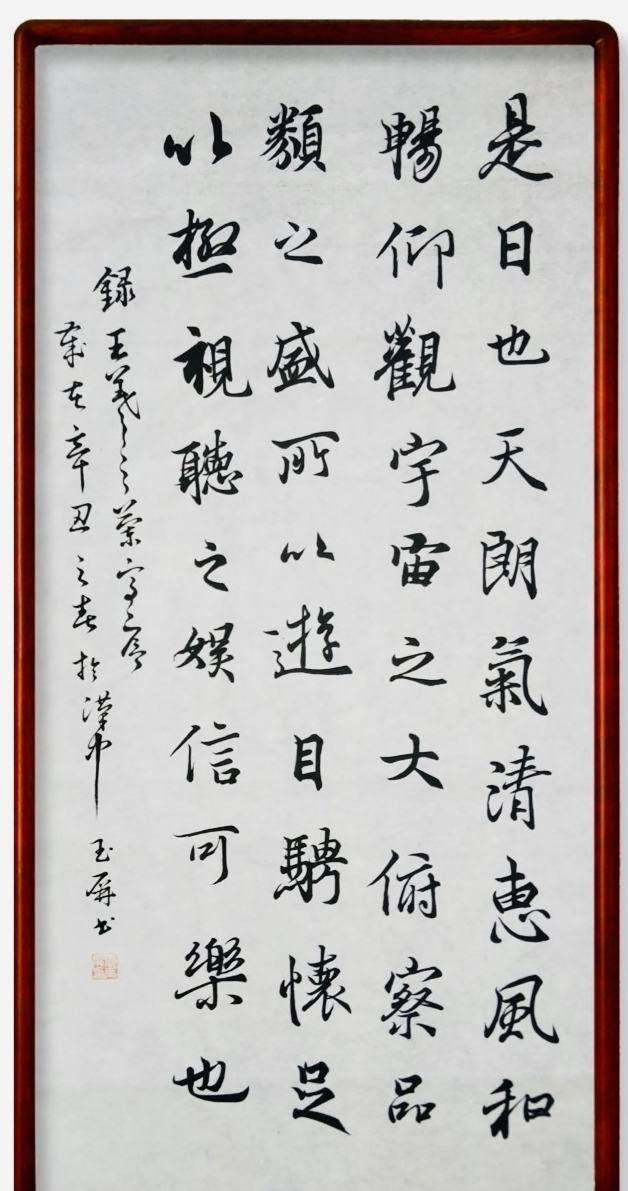 是日也天朗氣清惠風和
暢仰觀宇宙之大俯察品
類之盛所以遊目騁懷足
以極視聽之娛信可樂也
錄王羲之之蘭亭序
歲在辛丑之春於漢中
玉屏書